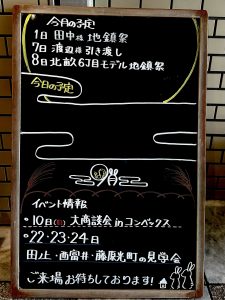 今月の予定
1日 田中様 地鎮祭
7日 渡辺様 引き渡し
8日 北畝6丁目モデル地鎮祭
今日の予定
9月
イベント情報
・10日(日) 大商談会 in コンベックス
・22・23・24日
田止・西富井・藤原光町の見学会
ご来場お待ちしております!